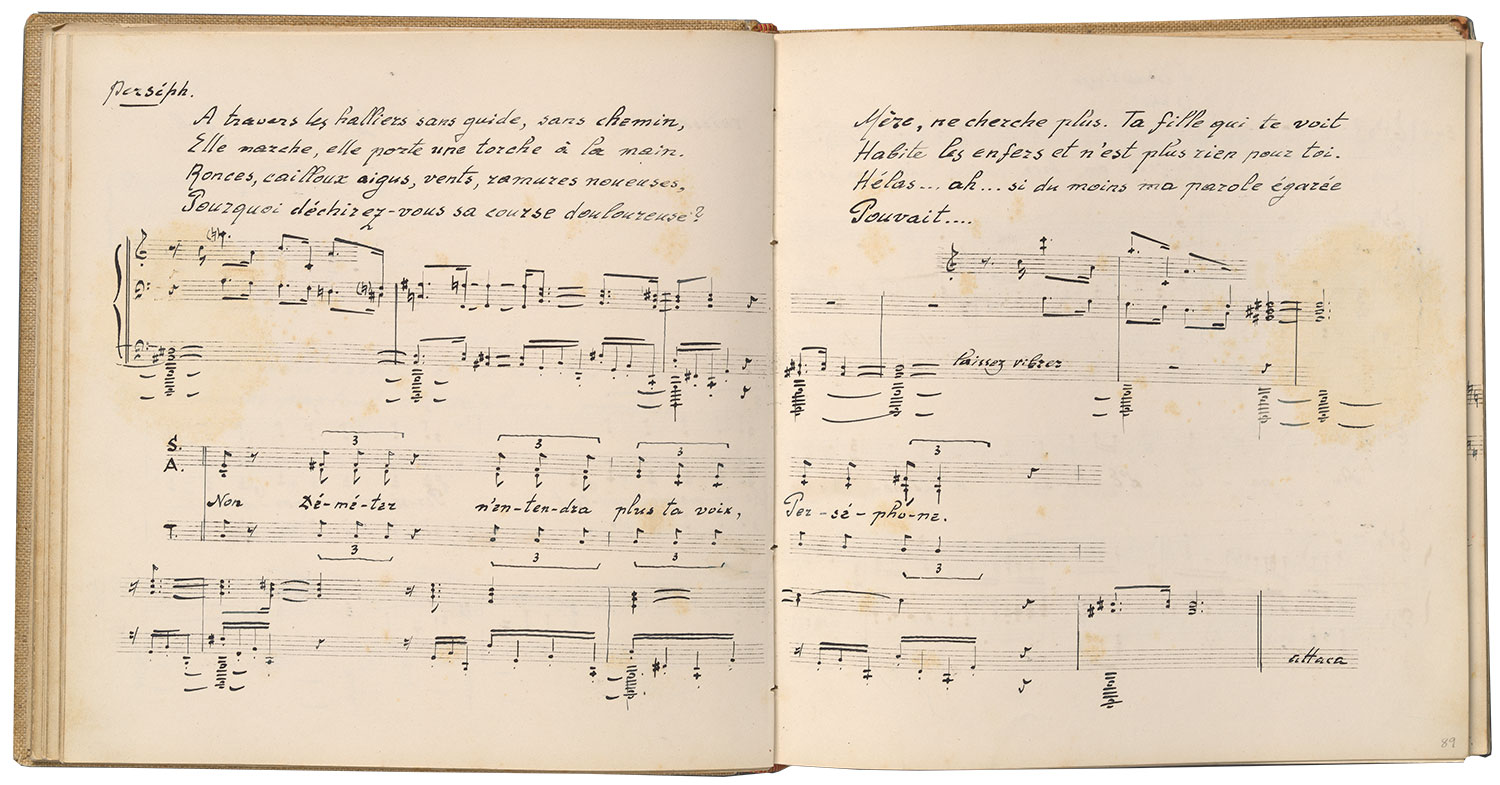 Perséph.
A travers les halliers sans guide, sans chemin,
Elle marche, elle porte une torche à la main.
Ronces, cailloux aigus, vents, ramures noueuses,
Pourquoi déchirez-vous sa course douloureuse?
Mère, ne cherche plus. Ta fille qui te voit
Habite les enfers et n'est plus rien pour toi.
Hélas... ah... si du moins ma parole égarée
Pouvait....
laissez vibrer
3 3 3
S.
A.
Non Dé-mé-ter n'en-ten-dra plus ta voix, Per-sé-pho-ne.
T.
3 3 3 3
attaca
89